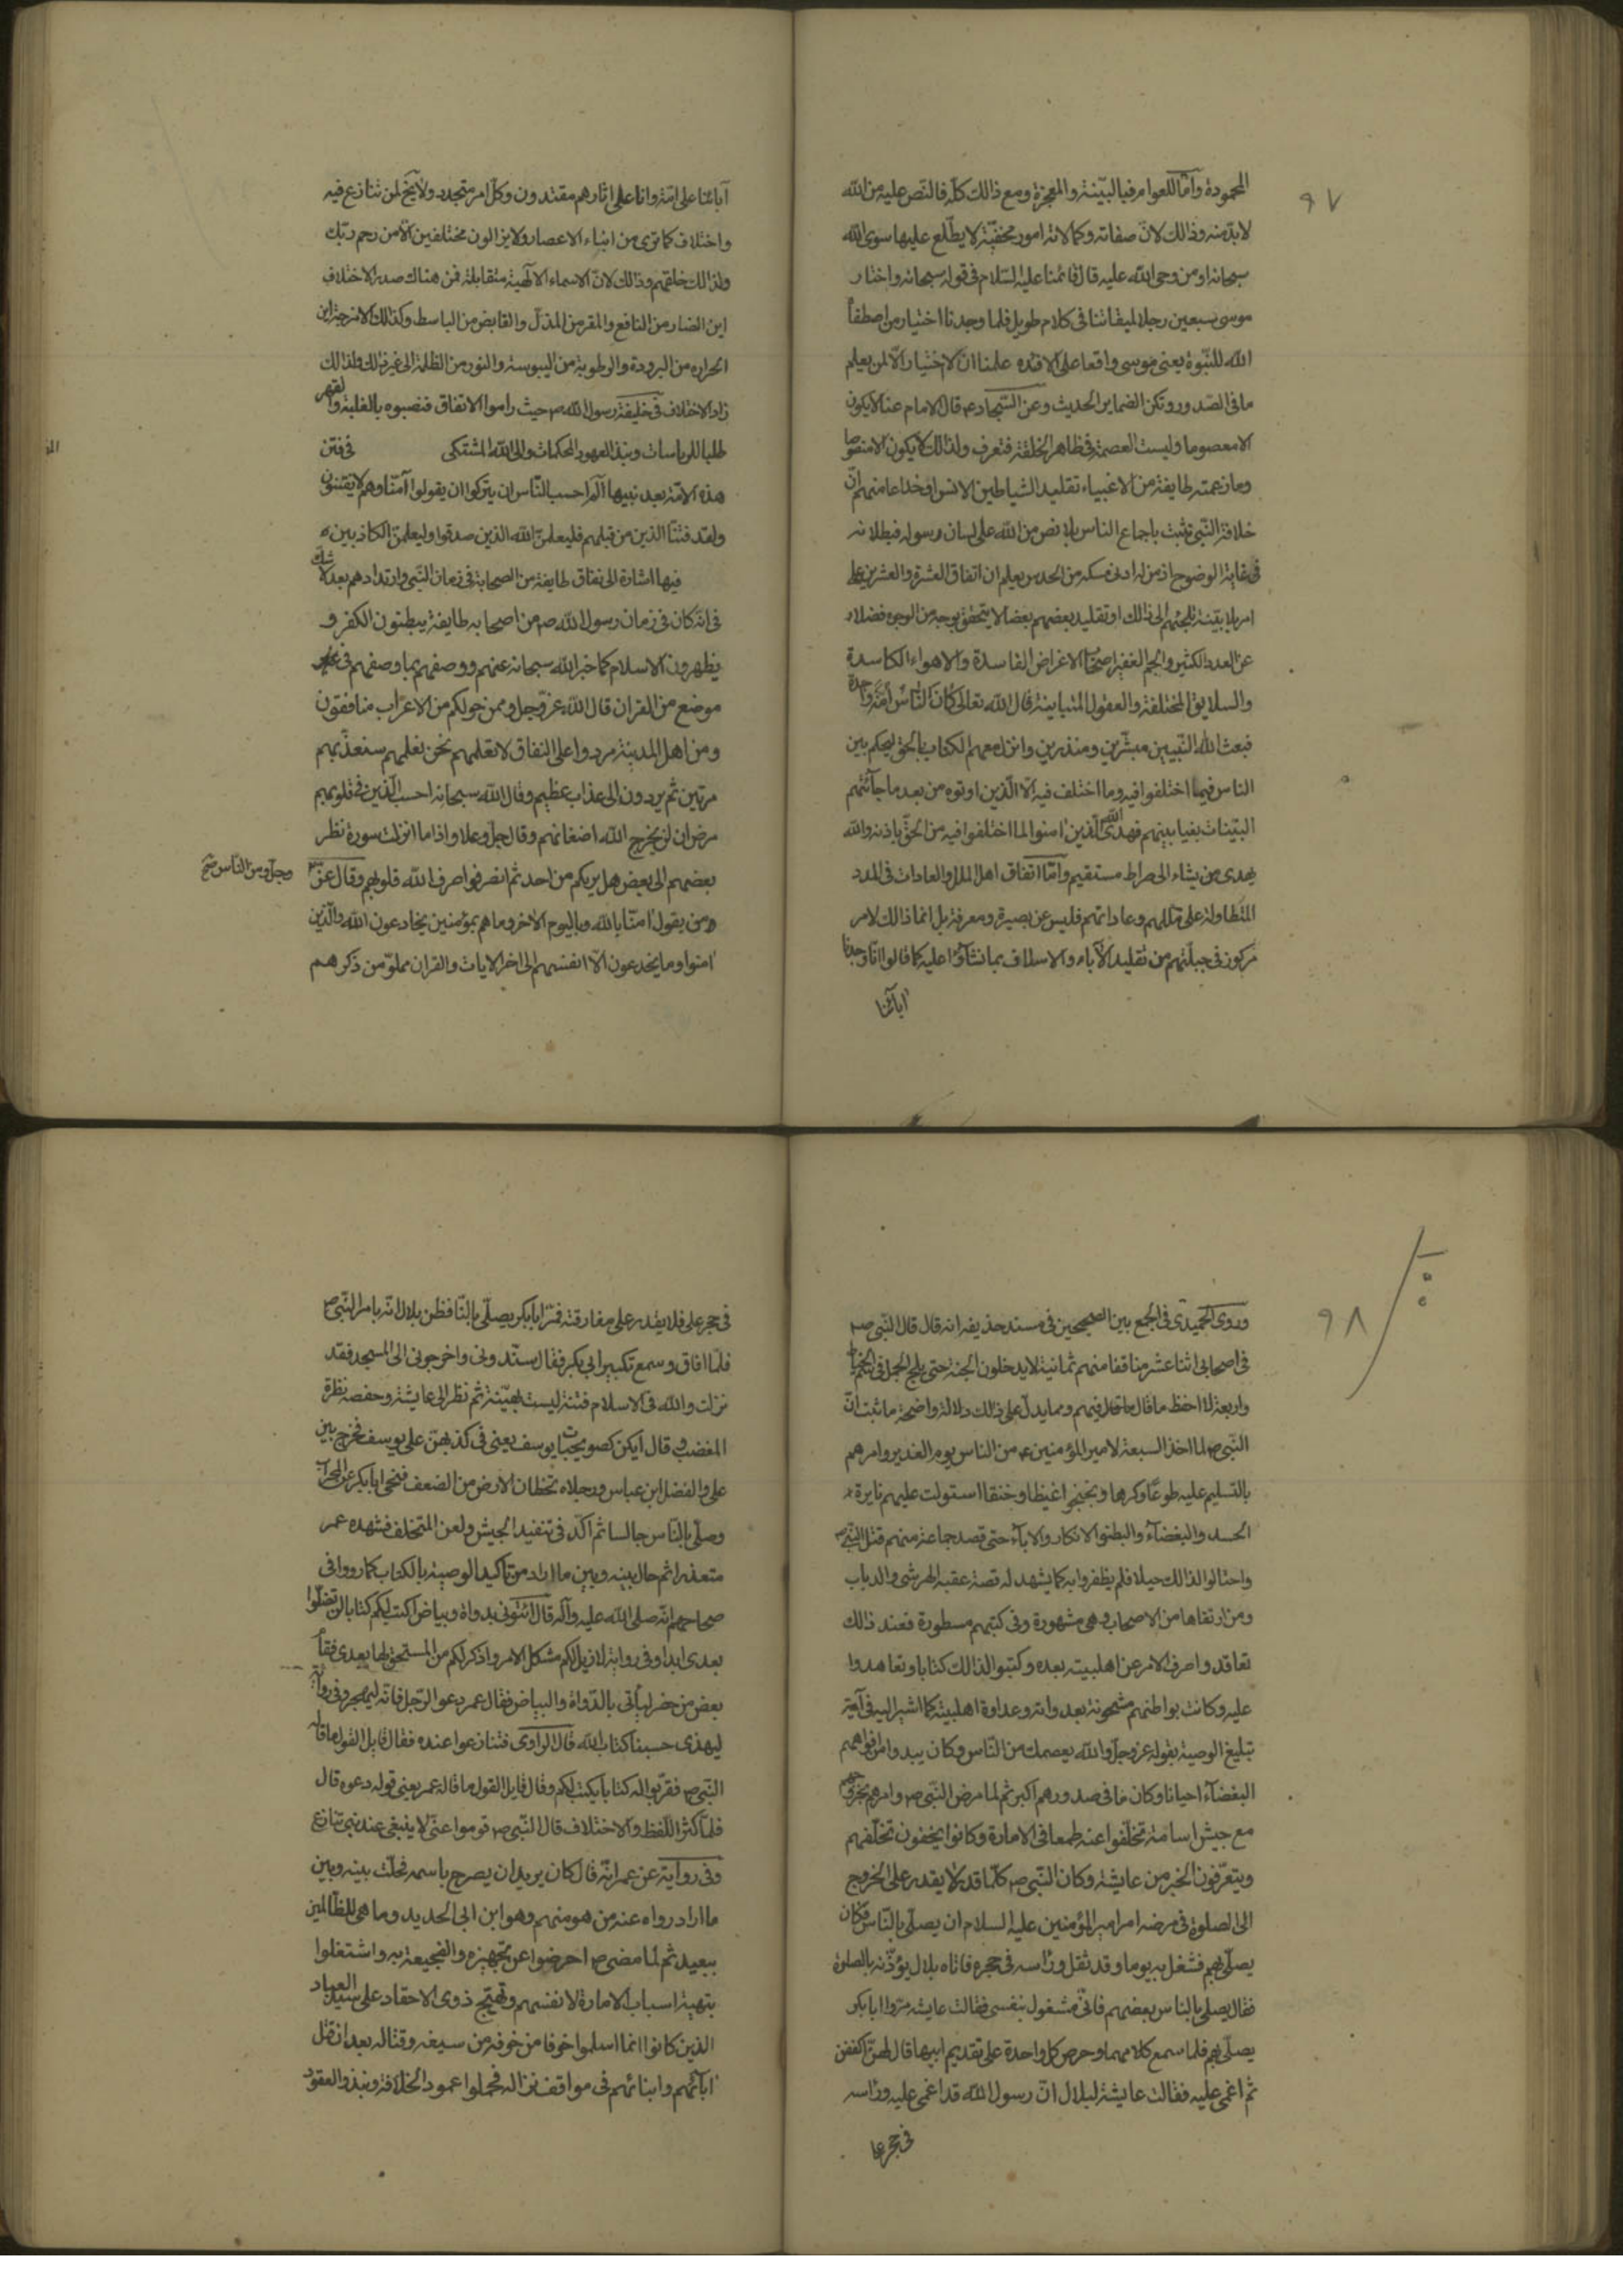 ٩٧
المحمودة وامّا للعوام فبالبيّنة والمعجزة ومع ذالك كلّه فالنّص عليه من الله
لابدّ منه وذالك لانّ صفاته وكمالاته امور مخفيّة لا يطّلع عليها سوى الله
سبحانه او من وحى الله عليه قال قائمنا عليه السّلام فى قوله سبحانه واختار
موسى سبعين رجلا لميقاتنا فى كلام طويل فلما وجدنا اختيار من اصطفاٌ
الله للنّبوة يعنى موسى واقعا على الافسد علمنا ان لا اختيار الّا لمن يعلم
ما فى الصّدور وتكن الضماير الحديث وعن السّجاد ع قال الامام منا لا يكون
الا معصوما وليست العصمة فى ظاهر الخلقة فتعرف ولذالك لا يكون الا منصوصا
وما زعمته طايفة من الاغبياء تقليد الشياطين الانس وخداعا منهم انّ
خلافة النّبى تثبت باجماع الناس بلا نص من الله على لسان رسوله فبطلانه
فى غاية الوضوح اذ من له ادنى مسكه من الحدس يعلم ان اتفاق العشرة والعشرين على
امر بلا بيّنة تلجئهم الى ذالك او تقليد بعضهم بعضا لا يتحقق بوجه من الوجوه فضلا
عن العدد الكثير والجم الغفير اصحاب الاغراض الفاسدة والاهواء الكاسدة
والسلايق المختلفة والعقول المتباينة قال الله تعالى كان النّاس امّة واحدة
فبعث الله النّبيين مبشّرين ومنذرين وانزل معهم الكتاب بالحق ليحكم بين
الناس فيما اختلفوا فيه وما اختلف فيه الّا الّذين اوتوه من بعد ما جآئتهم
البيّنات بغيا بينهم فهدى الله الّذين امنوا لما اختلفوا فيه من الحقّ باذنه والله
يهدى من يشاء الى صراط مستقيم وامّا اتفاق اهل الملل والعادات فى المدد
المتطاولة على مللهم وعاداتهم فليس عن بصيرة ومعرفة بل انما ذالك لامر
مركوز فى جبلّتهم من تقليد الآباء والاسلاف بما نشأوا عليه كما قالوا انّا وجدنا
ابآئنا
آبائنا على امّة وانا على اثارهم مقتدون وكلّ امر متجدد ولا يخ لمن تنازع فيه
واختلاف كما ترى من ابناء الاعصار ولا يزالون مختلفين الّا من رحم ربّك
ولذالك خلقهم وذالك لانّ الاسماء الآلهية متقابلة فمن هناك صدر الاختلاف
اين الضار من النافع والمقر من المذلّ والقابض من الباسط وكذالك الامزجة اين
الحراره من البرودة والرطوبة من اليبوسة والنور من الظلمة الى غير ذالك ولذالك
زاد الاختلاف فى خليفة رسول الله ص حيث راموا الاتفاق فنصبوه بالغلبة والقهر
طلبا للرياسات ونبذ العهود المحكمات والى الله المشتكى فى فتن
هذه الامّة بعد نبيها آلم احسب النّاس ان يتركوا ان يقولوا آمنّا وهم لا يفتنون
ولقد فتنّا الذين من قبلهم فليعلمنّ الله الذين صدقوا وليعلمنّ الكاذبين
فيها اشارة الى نفاق طايفة من الصحابة فى زمان النّبى وارتدادهم بعده لا شك
فى انّه كان فى زمان رسول الله ص من اصحابه طايفة يبطنون الكفر و
يظهرون الاسلام كما خبر الله سبحانه عنهم ووصفهم بما وصفهم فى غير
موضع من القران قال الله عزّوجل وممن حولكم من الاعراب منافقون
ومن اهل المدينة مردوا على النفاق لا تعلمهم نحن نعلمهم سنعذّبهم
مرتين ثم يردون الى عذاب عظيم وقال الله سبحانه احسب الّذين فى قلوبهم
مرض ان لن يخرج الله اضغانهم وقال جلّ وعلا واذا ما انزلت سورة نظر
بعضهم الى بعض هل يريكم من احد ثم انصرفوا صرف الله قلوبهم وقال عزّ
وجلّ ومن النّاس صح
من يقول امنّا بالله وباليوم الاخر وما هم بمؤمنين يخادعون الله والّذين
امنوا وما يخدعون الّا انفسهم الى اخر الايات والقران مملوّ من ذكرهم
٩٨
وروى الحميدى فى الجمع بين الصحيحين فى مسند حذيفه انه قال قال النّبى ص
فى اصحابى اثنا عشر منافقا منهم ثمانية لا يدخلون الجنة حتى يلج الجمل فى سم الخياط
واربعة لا احفظ ما قال قال فيهم ومما يدلّ على ذالك دلالة واضحة ما ثبت انّ
النّبى ص لما اخذ السبعة لامير المؤمنين ع من الناس يوم الغدير وامرهم
بالتسليم عليه طوعًا وكرها وبخبخوا غيظا وخنقا استولت عليهم نايرة
الحسد والبغضآء والبطنوا الانكار والابآء حتى قصد جماعة منهم قتل النّبى ص
واحتالوا لذالك حيلا فلم يظفروا به كما يشهد له قصة عقبه الهرشى والدباب
ومن ارتقاها من الاصحاب وهى مشهورة وفى كتبهم مسطورة فعند ذلك
تعاقدوا صرف الامر عن اهلبيته بعده وكتبوا لذالك كتابا وتعاهدوا
عليه وكانت بواطنهم مشحونة بعداوته وعداوة اهلبيته كما اشير اليه فى آية
تبليغ الوصية بقوله عزوجلّ والله يعصمك من النّاس وكان يبدوا من افواههم
البغضآء احيانا وكان ما فى صدورهم اكبر ثم لما مرض النّبى ص وامرهم بخروجهم
مع جيش اسامة تخلّفوا عنه طمعا فى الامارة وكانوا يخفون تخلّفهم
ويتعرّفون الخبر من عايشة وكان النّبى ص كلّما قد لا يقدر على الخروج
الى الصلوة فى مرضه امر امير المؤمنين عليه السلام ان يصلّى بالنّاس فكان
يصلّى بهم فشغل به يوما وقد ثقل ورأسه فى حجره فاتاه بلال يؤذّنه بالصلوة
فقال يصلى بالناس بعضهم فانّى مشغول بنفسى فقالت عايشه مرّوا ابا بكر
يصلّى بهم فلما سمع كلامهما وحرص كل واحدة على تقديم ابيها قال لهنّ اكففن
ثم اغمى عليه فقالت عايشة لبلال انّ رسول الله قد اغمى عليه وراسه
فى حجر على
فى حجر على فلا يقدر على مفارقته فمر ابابكر يصلّى بالنّا فظن بلال انّه بامر النّبى ص
فلمّا افاق وسمع تكبير ابى بكر فقال سنّدونى واخرجونى الى المسجد فقد
نزلت والله فى الاسلام فتنة ليست بهيّنة ثم نظر الى عايشة وحفصه نظرة
المغضب وقال آيكن كصويحبات يوسف يعنى فى كذبهنّ على يوسف فخرج بين
على والفضل ابن عباس ورجلاه تخطّان الارض من الضعف فنحى ابابكر عن المحراب
وصلّى بالنّاس جالسا ثم اكّد فى تنفيد الجيش ولعن المتخلف فشهده عمر
متعذرا ثم حال بينه وبين ما اراد من تاكيد الوصية بالكتاب كما رووا فى
صحاحهم انّه صلى الله عليه وآله قال ائتونى بدواة وبياض اكتب لكم كتابا لن تضلّوا
بعدى ابدا وفى رواية لازيل لكم مشكل الامر واذكر لكم من المستحق لها بعدى فقاٌ
بعض من حضر ليأتى بالدّواة والبياض فقال عمر دعوا الرّجل فانّه ليهجر وفى رواية
ليهذى حسبنا كتاب الله قال الراوى فتنازعوا عنده فقال قايل القول ما قاله
النّبى ص فقرّبوا له كتابا يكتب لكم وقال قايل القول ما قاله عمر يعنى قوله دعوه قال
فلمّا كثر اللّفظ والاختلاف قال النّبى ص قوموا عنّى لا ينبغى عند نبى تنازع
وفى رواية عن عمر انّه قال كان يريد ان يصرح باسمه فحلت بينه وبين
ما اراد رواه عنه من هو منهم وهو ابن ابى الحديد وما هى للظّالمين
ببعيد ثم لما مضى ص احرضوا عن تجهيزه والفجيعة به واشتغلوا
بتهية اسباب الامارة لانفسهم وتهيّج ذوى الاحقاد على سيد العباد
الذين كانوا انما اسلموا خوفا من خوفه من سيفه وقتاله بعد ان قتل
ابآئهم وابنائهم فى مواقف نزاله فحملوا عمود الخلافة ونبذوا العقود